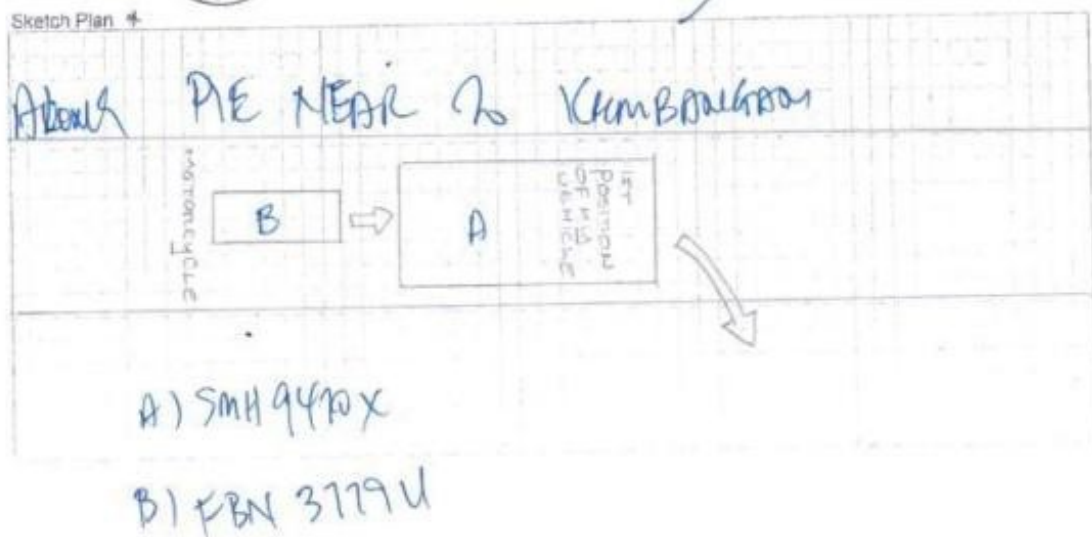 Sketch Plan *
Along PIE NEAR to KEMBANGAN
MOTORCYCLE
B
A
1ST
POSITION
OF MY
VEHICLE
A) SMH 9470X
B) FBN 3779U